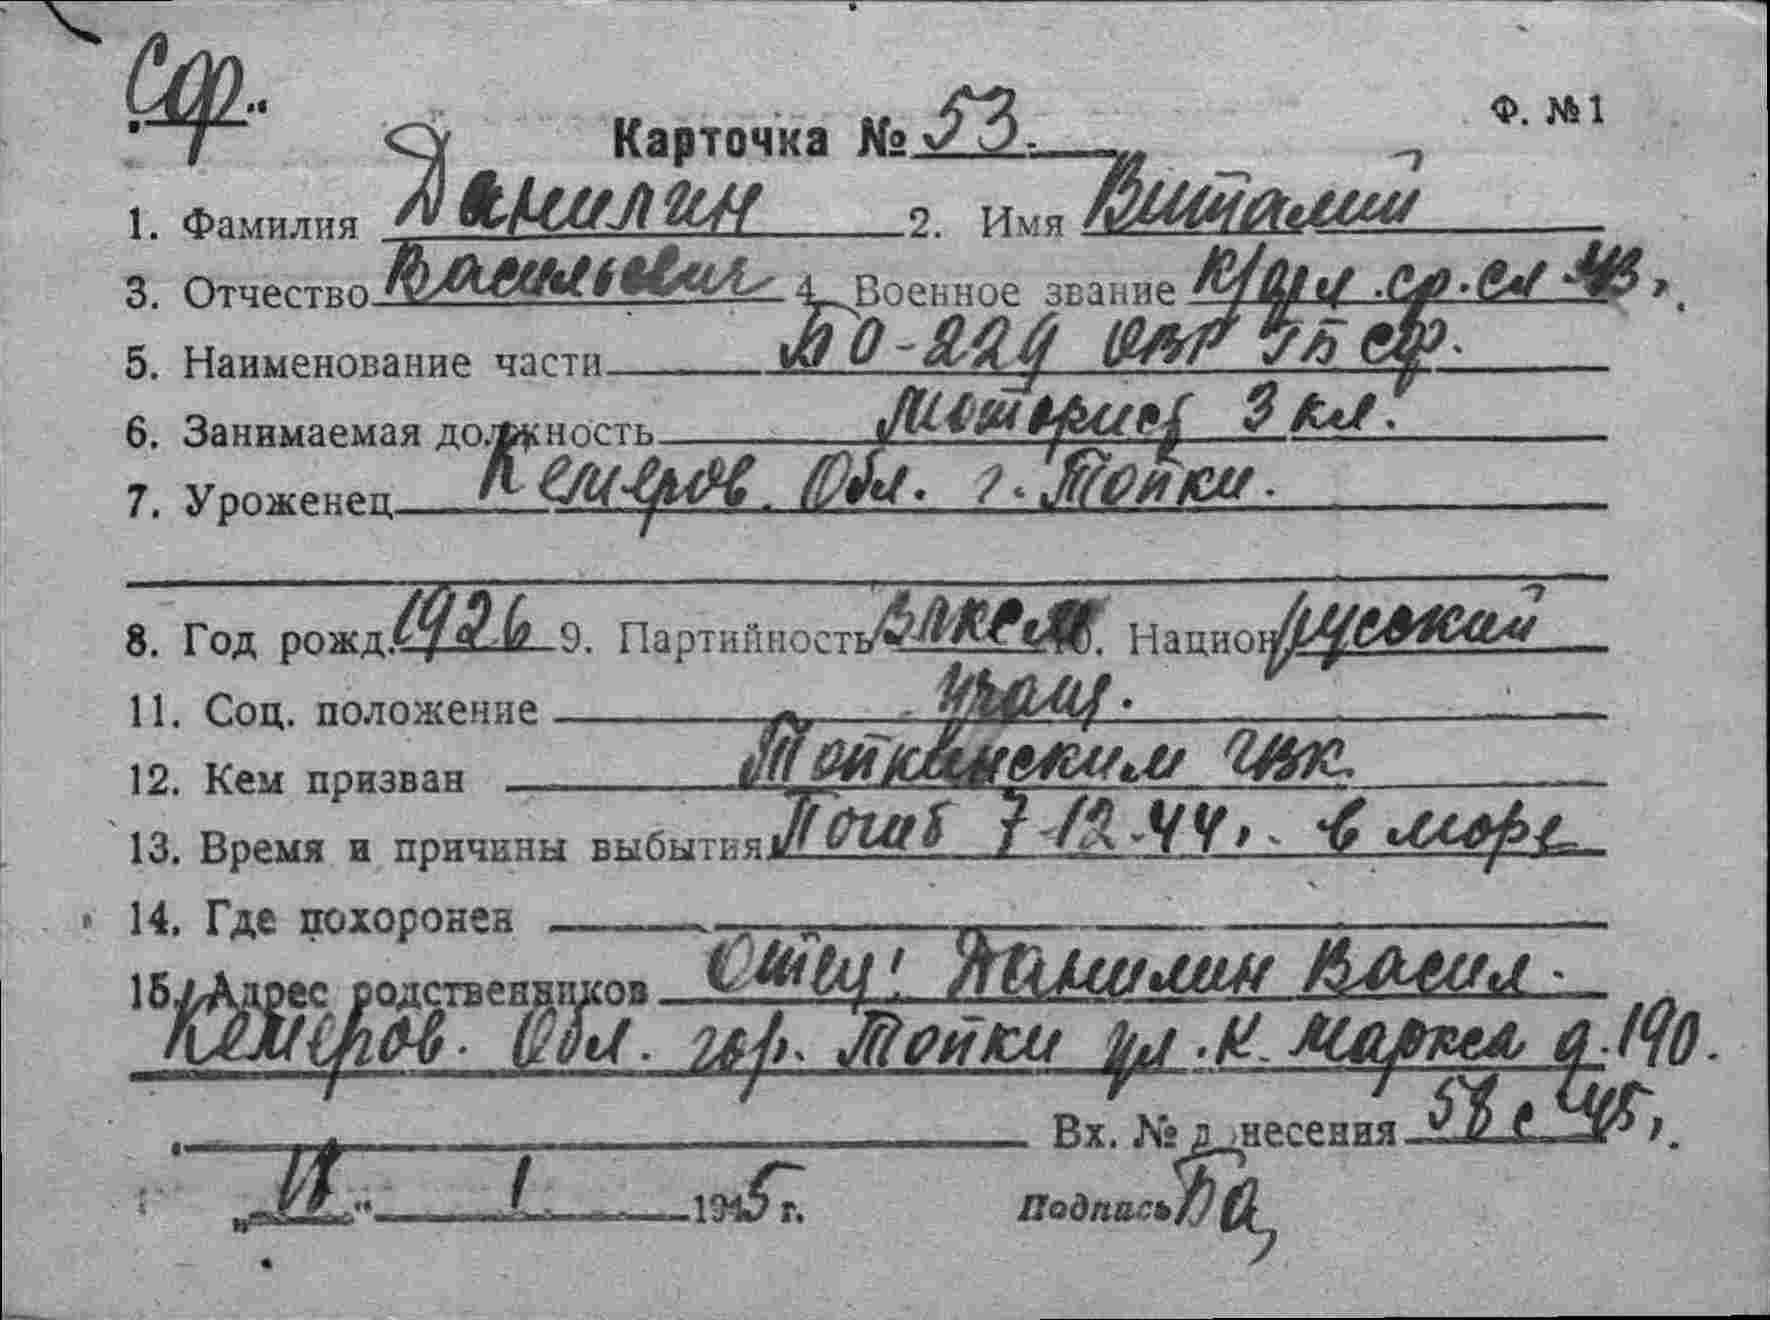 Сф.
Ф. №1
Карточка № 53.
1. Фамилия Данилин 2. Имя Виталий
3. Отчество Васильевич 4. Военное звание к/фл. ср. сл 43 г.
5. Наименование части БО-229 ОВР ГБ СФ.
6. Занимаемая должность моторист 3 кл.
7. Уроженец Кемеров. Обл. г. Топки.
8. Год рожд. 1926 9. Партийность ВЛКСМ 10. Национ. русский
11. Соц. положение учащ.
12. Кем призван Топкинским ГВК.
13. Время и причины выбытия Погиб 7-12-44 г. в море
14. Где похоронен
15. Адрес родственников Отец: Данилин Васил.
Кемеров. Обл. гор. Топки ул. К. Маркса д. 190.
Вх. № донесения 58 с 45 г.
„ “ 1 1945 г. Подпись